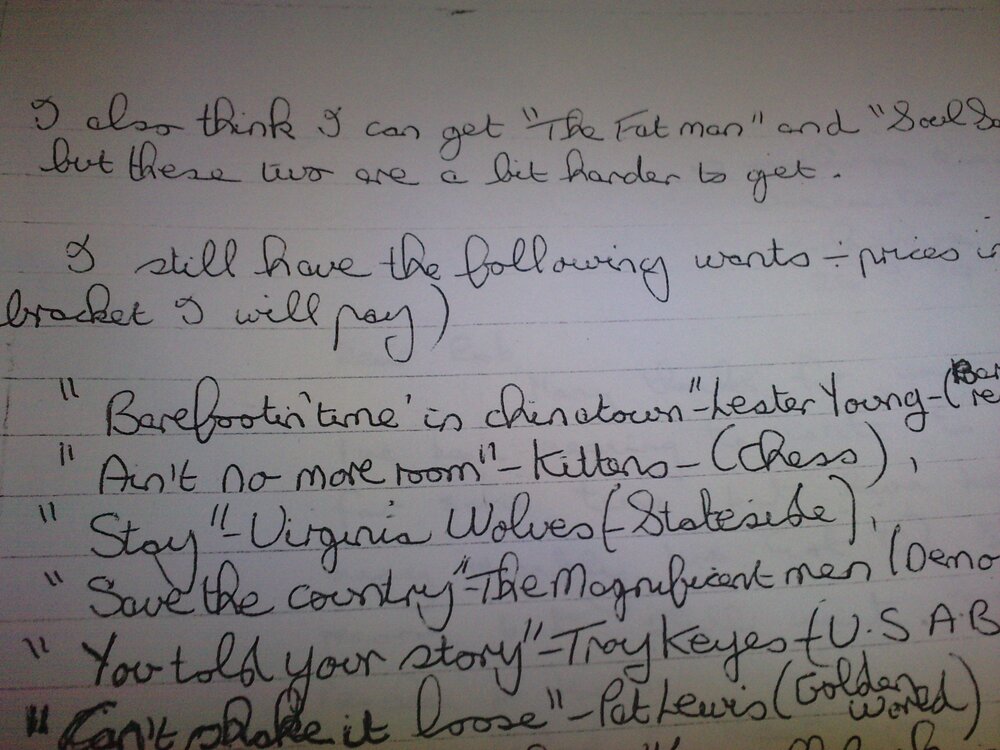 I also think I can get "The Fat man" and "Soul
but these two are a bit harder to get.
I still have the following wants - prices
bracket I will pay)
"Barefootin' time' in chinatown" - Lester Young - (
"Ain't no more room" - Kittens - (Chess),
"Stay" - Virginia Wolves (- Stateside),
"Save the country" - The Magnificent men (Demo
"You told your story" - Troy Keyes (U.S A.B
"Can't shake it loose" - Pat Lewis (Golden World)